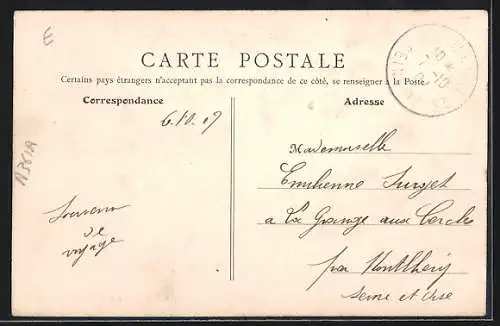 E
CARTE POSTALE
Certains pays étrangers n'acceptant pas la correspondance de ce côté, se renseigner à la Poste
Correspondance
Adresse
6.10.07
Mademoiselle
Emilienne Surget
à La Grange aux Cercles
par Montlhéry
Seine et Oise
Souvenir
de
voyage